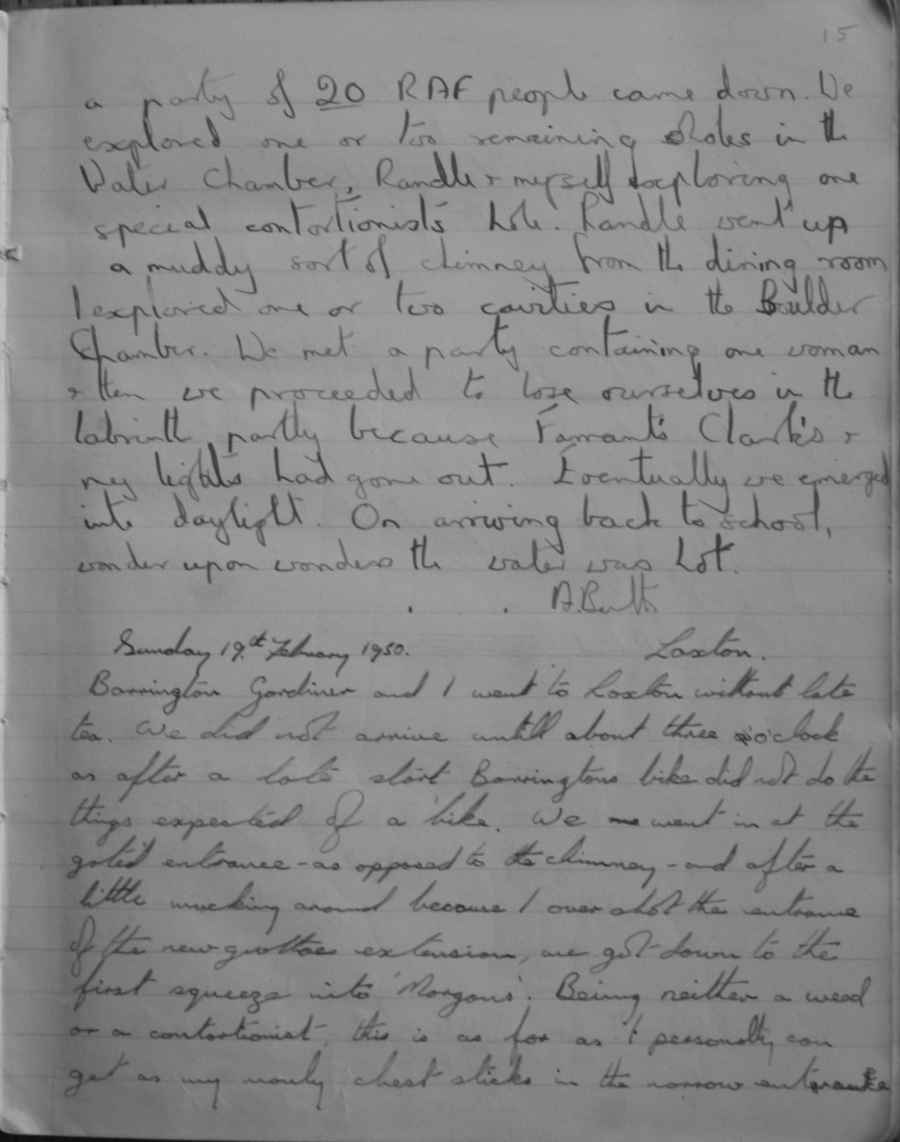 15
a party of 20 RAF people came down. We
explored one or two remaining holes in the
Water Chamber, Randle + myself exploring one
special contortionist's hole. Randle went up
a muddy sort of chimney from the dining room
I explored one or two cavities in the Boulder
Chamber. We met a party containing one woman
+ then we proceeded to lose ourselves in the
labrinth partly because Farrant's Clark's +
my lights had gone out. Eventually we emerged
into daylight. On arriving back to school,
wonder upon wonders the water was hot.
Sunday 19th February 1950. Loxton.
Barrington Gardiner and I went to Loxton without late
tea. We did not arrive untill about three o'clock
as after a late start Barringtons bike did not do the
things expected of a bike. We went in at the
gated entrance - as opposed to the chimney - and after a
little mucking around because I over shot the entrance
of the new grottoe extension, we got down to the
first squeeze into 'Morgans'. Being neither a weed
or a contortionist, this is as far as I personally can
get as my manly chest sticks in the narrow entrance